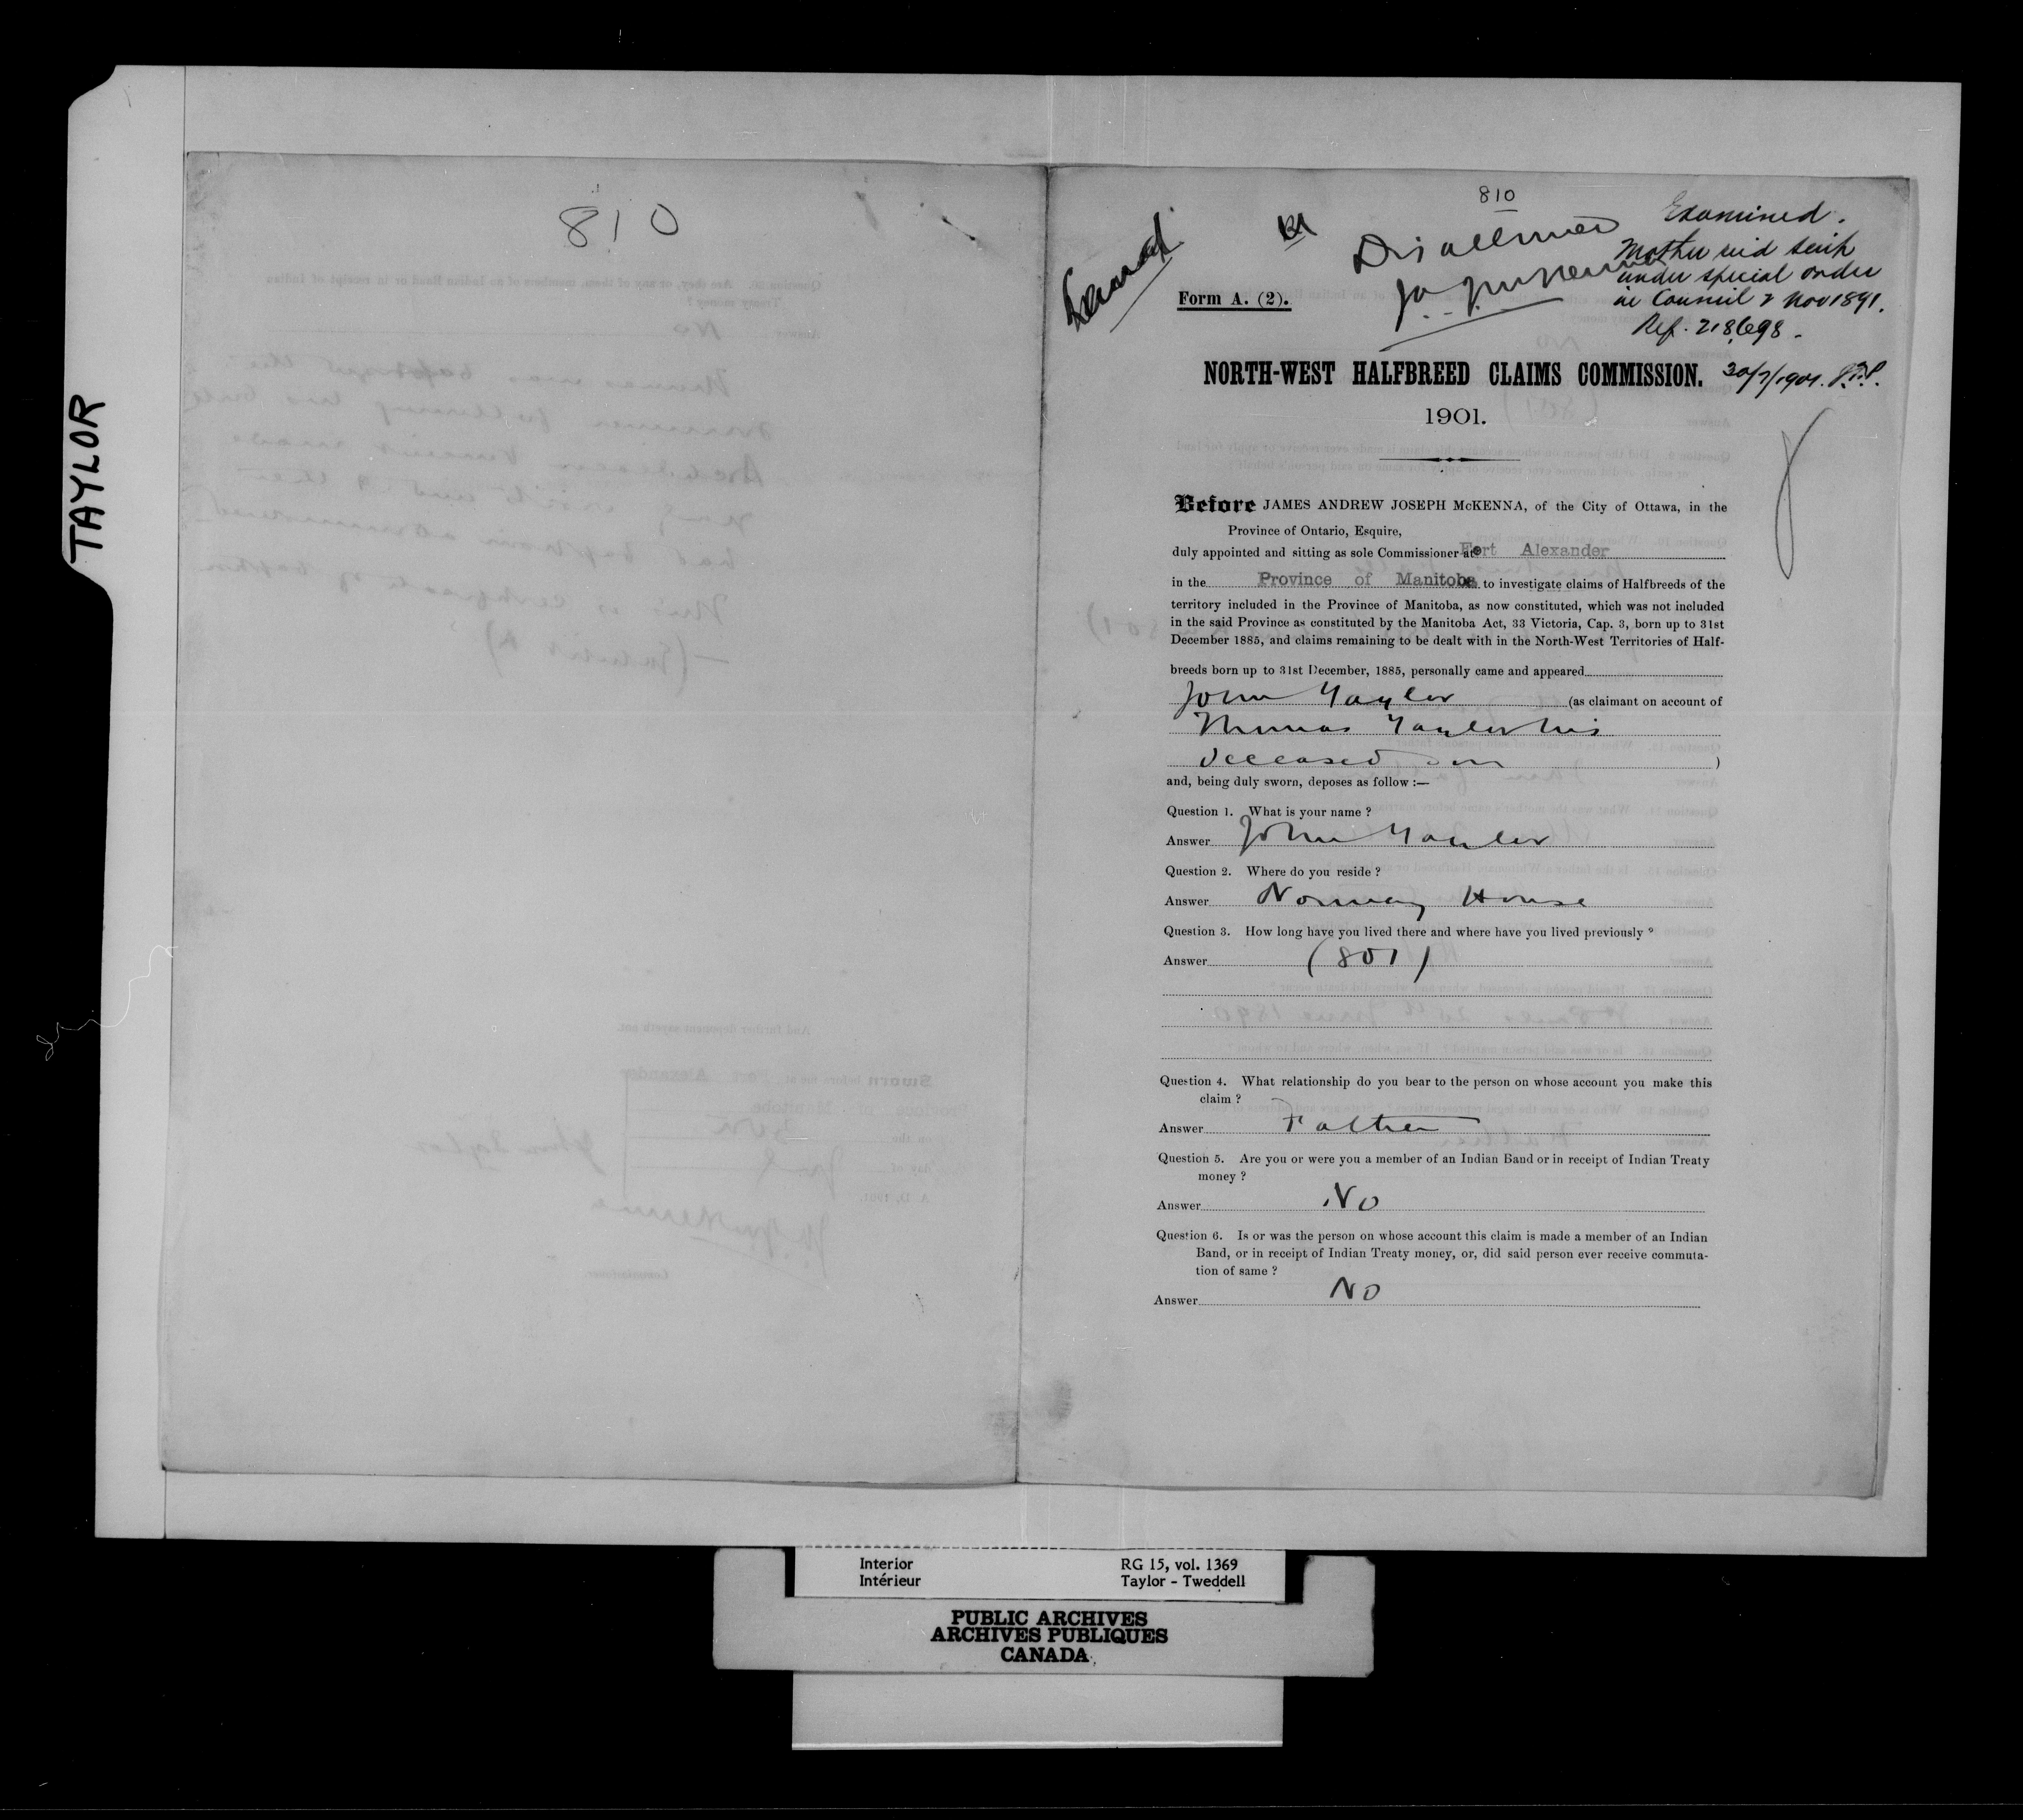 TAYLOR
810
810
Disallowed
J.A.J. McKenna
Examined.
Mother rec'd scrip
under special order
in Council 2 Nov 1891.
Ref. 218,698.
30/7/1901.
Form A. (2).
NORTH-WEST HALFBREED CLAIMS COMMISSION.
1901.
Before JAMES ANDREW JOSEPH McKENNA, of the City of Ottawa, in the
Province of Ontario, Esquire,
duly appointed and sitting as sole Commissioner at Fort Alexander
in the Province of Manitoba to investigate claims of Halfbreeds of the
territory included in the Province of Manitoba, as now constituted, which was not included
in the said Province as constituted by the Manitoba Act, 33 Victoria, Cap. 3, born up to 31st
December 1885, and claims remaining to be dealt with in the North-West Territories of Half-
breeds born up to 31st December, 1885, personally came and appeared
John Taylor (as claimant on account of
Thomas Taylor his
deceased son )
and, being duly sworn, deposes as follow :—
Question 1. What is your name ?
Answer John Taylor
Question 2. Where do you reside ?
Answer Norway House
Question 3. How long have you lived there and where have you lived previously ?
Answer (801)
Question 4. What relationship do you bear to the person on whose account you make this
claim ?
Answer Father
Question 5. Are you or were you a member of an Indian Band or in receipt of Indian Treaty
money ?
Answer No
Question 6. Is or was the person on whose account this claim is made a member of an Indian
Band, or in receipt of Indian Treaty money, or, did said person ever receive commuta-
tion of same ?
Answer No
Interior RG 15, vol. 1369
Intérieur Taylor - Tweddell
PUBLIC ARCHIVES
ARCHIVES PUBLIQUES
CANADA